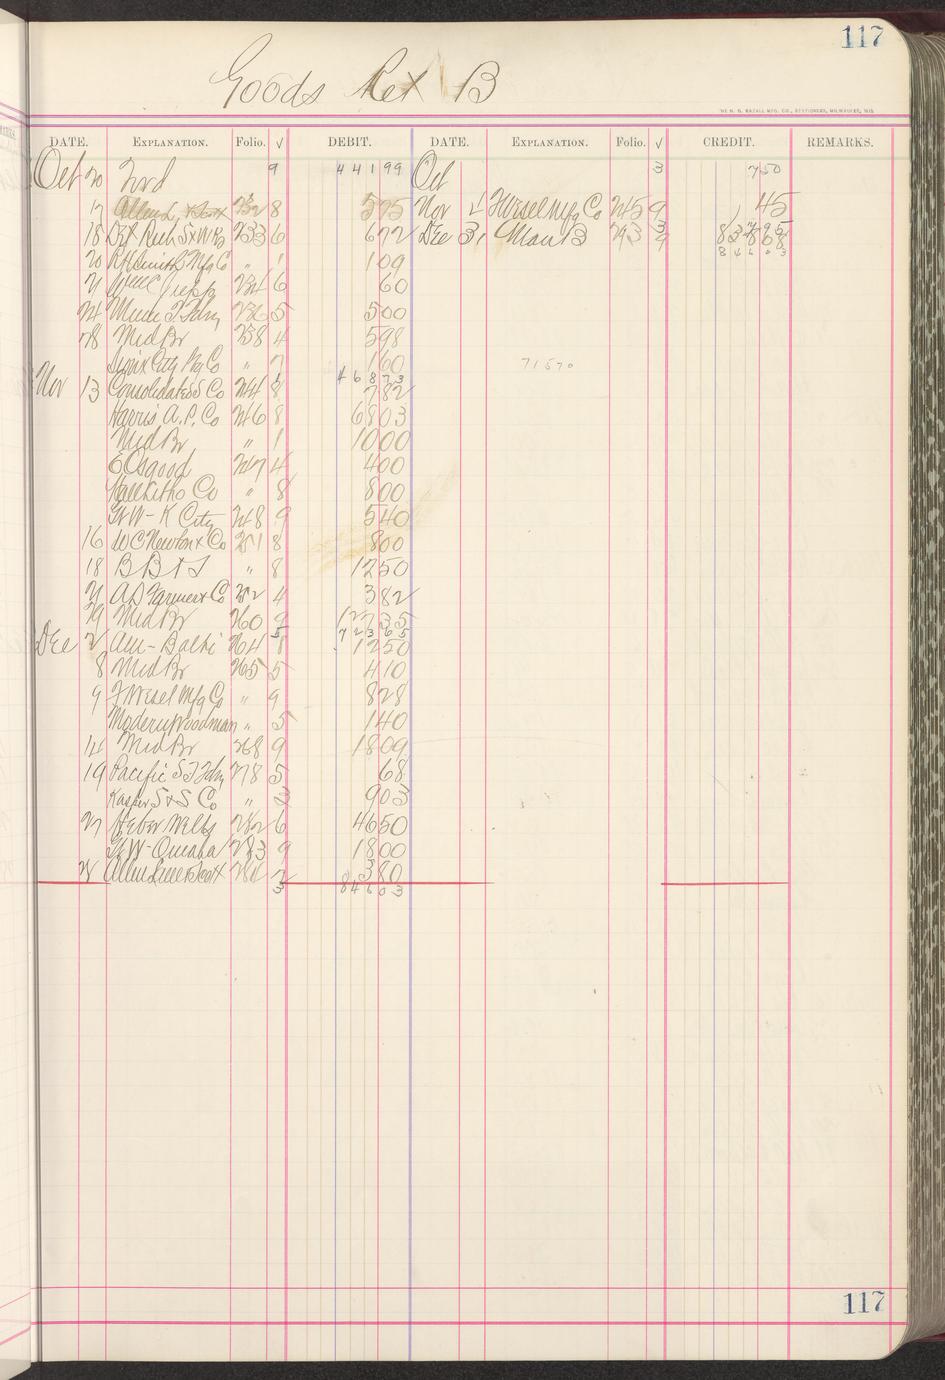 117
Goods Ret B
THE H. G. RAZALL MFG. CO., STATIONERS, MILWAUKEE, WIS.
DATE. EXPLANATION. Folio. √ DEBIT. DATE. EXPLANATION. Folio. √ CREDIT. REMARKS.
Oct 20 Fwd 9 441 99 Oct 3 7 50
17 Allen L & Scott 232 8 5 75 Nov 4 F Wesel Mfg Co 245 9 45
18 233 6 6 72 Dec 31 Man B 293 838 08
20 R H Smith Mfg Co " 1 1 09 846 03
21 234 6 60
24 236 5 5 00
28 Mid Br 238 4 5 98
Sioux City Co " 7 1 60 715 70
468 73
Nov 13 Consolidated S Co 244 8 7 82
Harris A. P. Co 246 8 68 03
Mid Br " 1 10 00
E Osgood 247 4 4 00
Hall Litho Co " 8 8 00
G W - K City 248 9 5 40
16 W C Newton & Co 251 8 8 00
18 B B & S " 8 12 50
21 A D Farmer & Co 252 4 3 82
29 Mid Br 260 9 127 35
5 723 65
Dec 2 Am - Balti 264 8 12 50
8 Mid Br 265 5 4 10
9 F Wesel Mfg Co " 9 8 28
Modern Woodman " 5 1 40
14 Mid Br 268 9 18 09
19 Pacific S T Fdry 278 5 68
Kasper S & S Co " 3 9 03
27 Heber Wells 282 6 46 50
G W - Omaha 283 9 18 00
Allen Lane & Scott 3 80
3 846 03
117